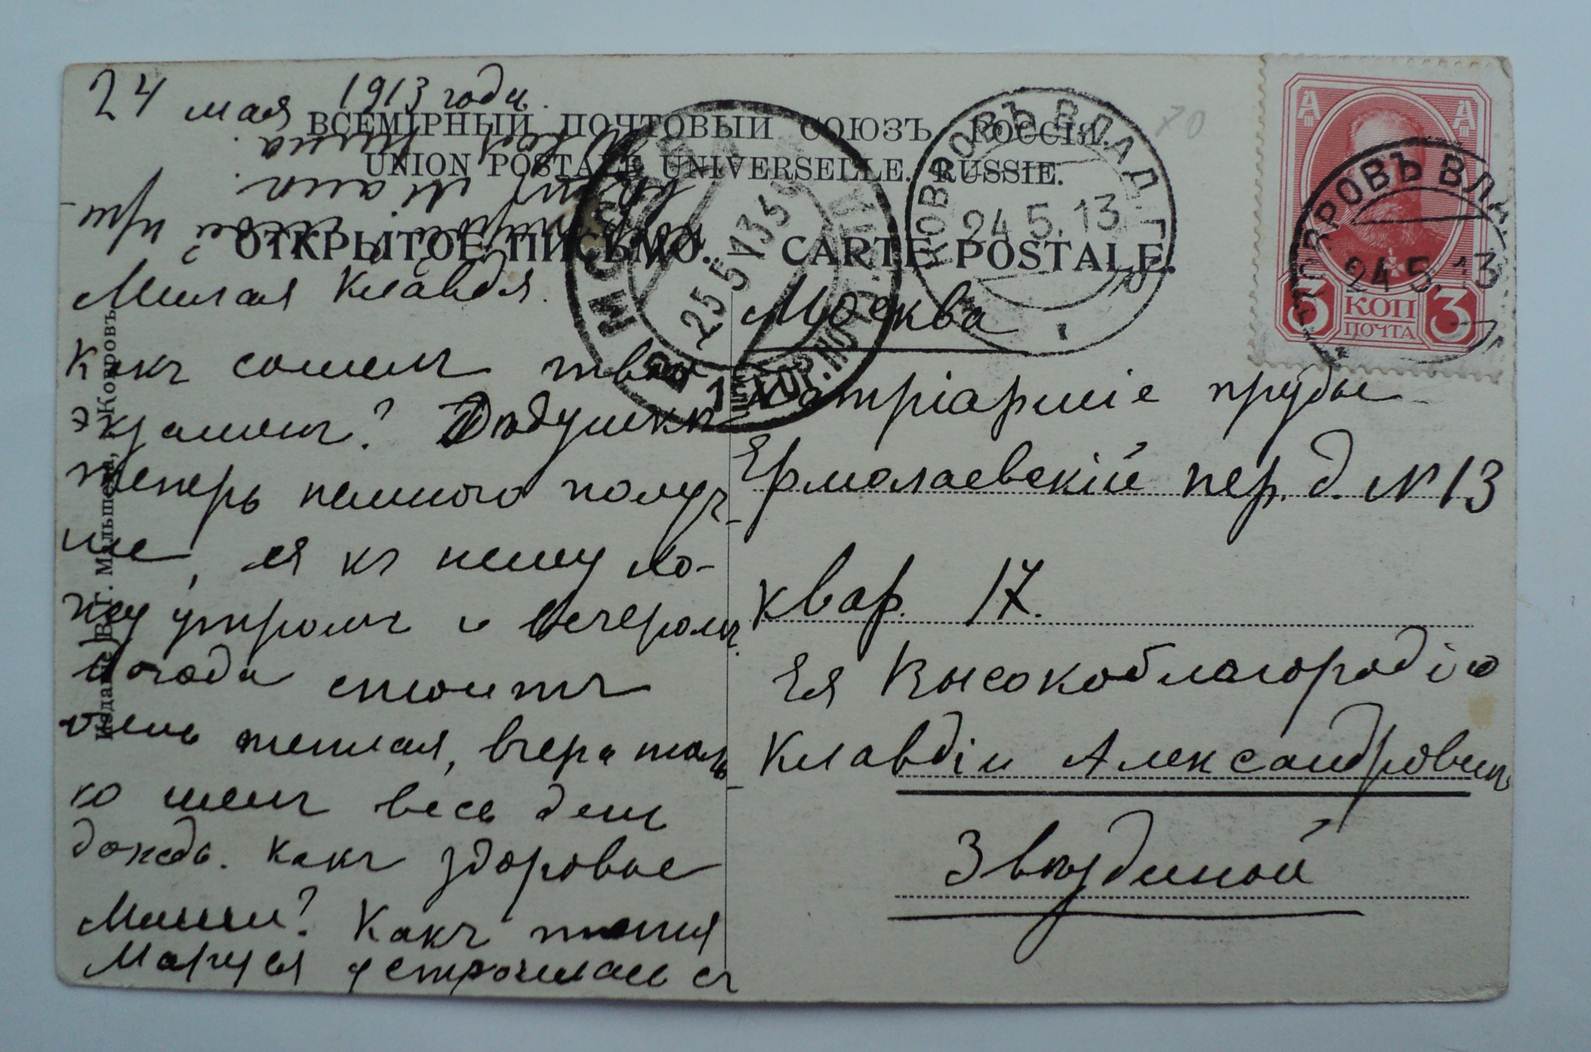 24 мая 1913 года.
ВСЕМІРНЫЙ ПОЧТОВЫЙ СОЮЗЪ. РОССІЯ.
UNION POSTALE UNIVERSELLE. RUSSIE.
ОТКРЫТОЕ ПИСЬМО. — CARTE POSTALE.
Милая Клавдя.
Какъ сошелъ твой
экзаменъ? Дѣдушкѣ
теперь немного получ-
ше, я къ нему хо-
жу утромъ и вечеромъ.
Погода стоитъ
очень теплая, вчера толь
ко шелъ весь день
дождь. Какъ здоровье
Мани? Какъ тетя
Маруся устроилась съ
Москва
Патріаршіе пруды
Ермолаевскій пер. д. № 13
квар. 17.
Ея Высокоблагородію
Клавдіи Александровнѣ
Звѣздиной
КОВРОВЪ ВЛАД. Г.
24 5. 13
КОВРОВЪ ВЛА
24 5. 13
МОСКВА
25 5 13
А А
3 КОП 3
ПОЧТА
70
Изданіе В. Г. Малышева, Ковровъ